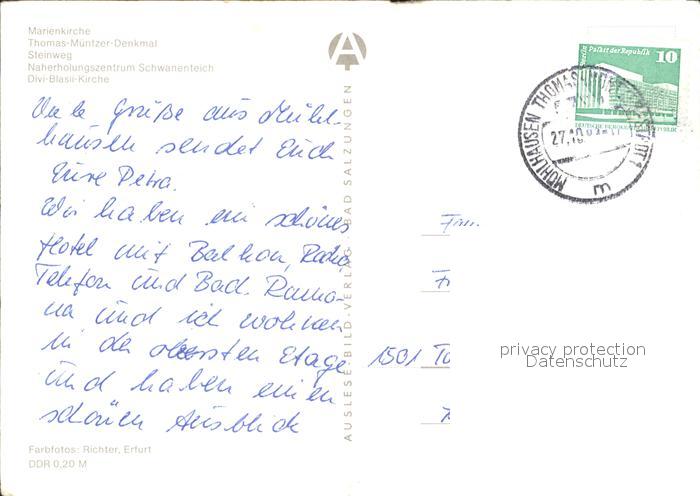 Marienkirche
Thomas-Müntzer-Denkmal
Steinweg
Naherholungszentrum Schwanenteich
Divi-Blasii-Kirche
Viele Grüße aus Mühl-
hausen sendet Euch
Eure Petra.
Wir haben ein schönes
Hotel mit Balkon, Radio
Telefon und Bad. Ramo-
na und ich wohnen
in der obersten Etage
und haben einen
schönen Ausblick
Farbfotos: Richter, Erfurt
DDR 0,20 M
AUSLESE-BILD-VERLAG BAD SALZUNGEN
Palast der Republik
10
MÜHLHAUSEN THOMAS-MÜNTZER-STADT 1
27.10
m
Fam.
1501
privacy protection
Datenschutz